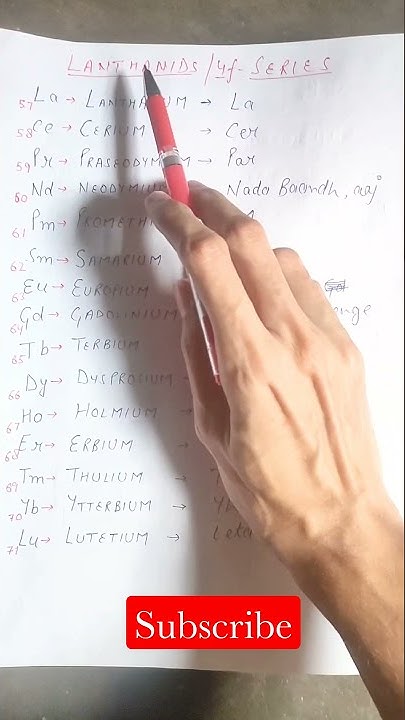 LANTHANIDS / 4f- SERIES
57 La → LANTHANUM → La
58 Ce → CERIUM → Cer
59 Pr → PRASEODYMIUM → Par
60 Nd → NEODYMIUM Nada Baandh, aaj
61 Pm → PROMETHI
62 Sm → SAMARIUM
63 Eu → EUROPIUM
64 Gd → GADOLINIUM enge
65 Tb → TERBIUM
66 Dy → DYSPROSIUM →
67 Ho → HOLMIUM →
68 Er → ERBIUM →
69 Tm → THULIUM →
70 Yb → YTTERBIUM → Yb
71 Lu → LUTETIUM → leta
Subscribe